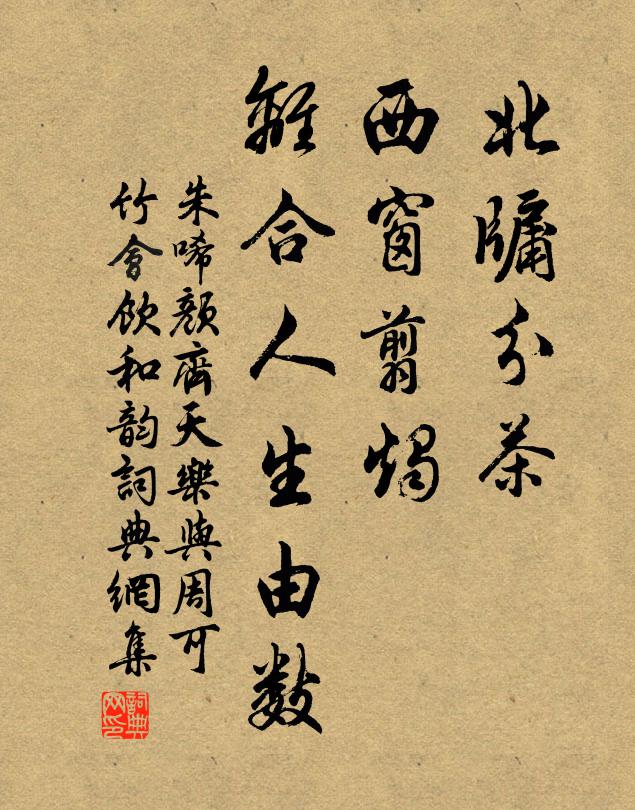 北牖分茶
西窗翦燭
離合人生由數
朱晞顏齊天樂與周可
竹會飲和韵詞典網集
詞典網印